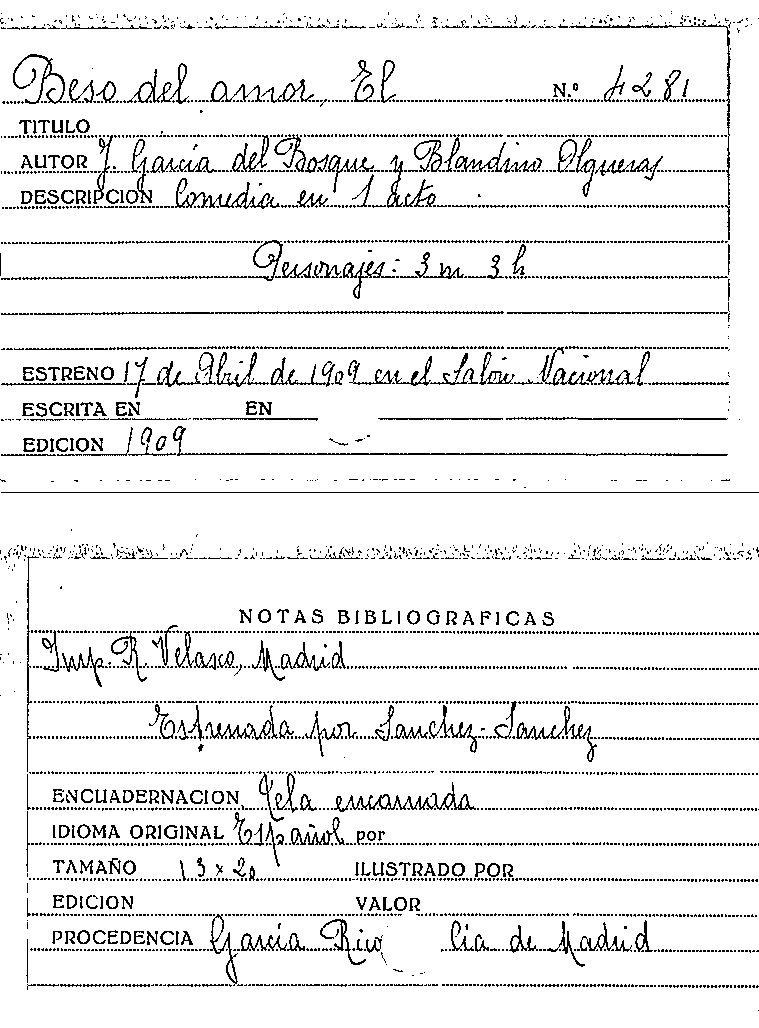 Beso del amor, El N.º 4281
TITULO
AUTOR J. García del Bosque y Blandino Olgueras
DESCRIPCION Comedia en 1 acto
Personajes: 3 m 3 h
ESTRENO 17 de Abril de 1909 en el Salón Nacional
ESCRITA EN EN
EDICION 1909
NOTAS BIBLIOGRAFICAS
Imp. R. Velasco, Madrid
Estrenada por Sanchez-Sanchez
ENCUADERNACION Tela encarnada
IDIOMA ORIGINAL Español por
TAMAÑO 13 x 20 ILUSTRADO POR
EDICION VALOR
PROCEDENCIA García Rico Cia de Madrid